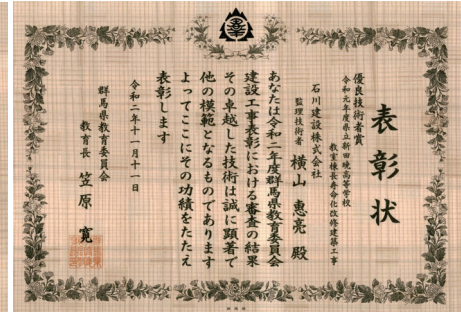 表彰状
優良技術者賞
令和元年度県立新田暁高等学校
教室棟長寿命化改修建築工事
石川建設株式会社
監理技術者 横山 惠亮 殿
あなたは令和二年度群馬県教育委員会
建設工事表彰における審査の結果
その卓越した技術は誠に顕著で
他の模範となるものであります
よってここにその功績をたたえ
表彰します
令和二年十一月十一日
群馬県教育委員会
教育長 笠原 寛